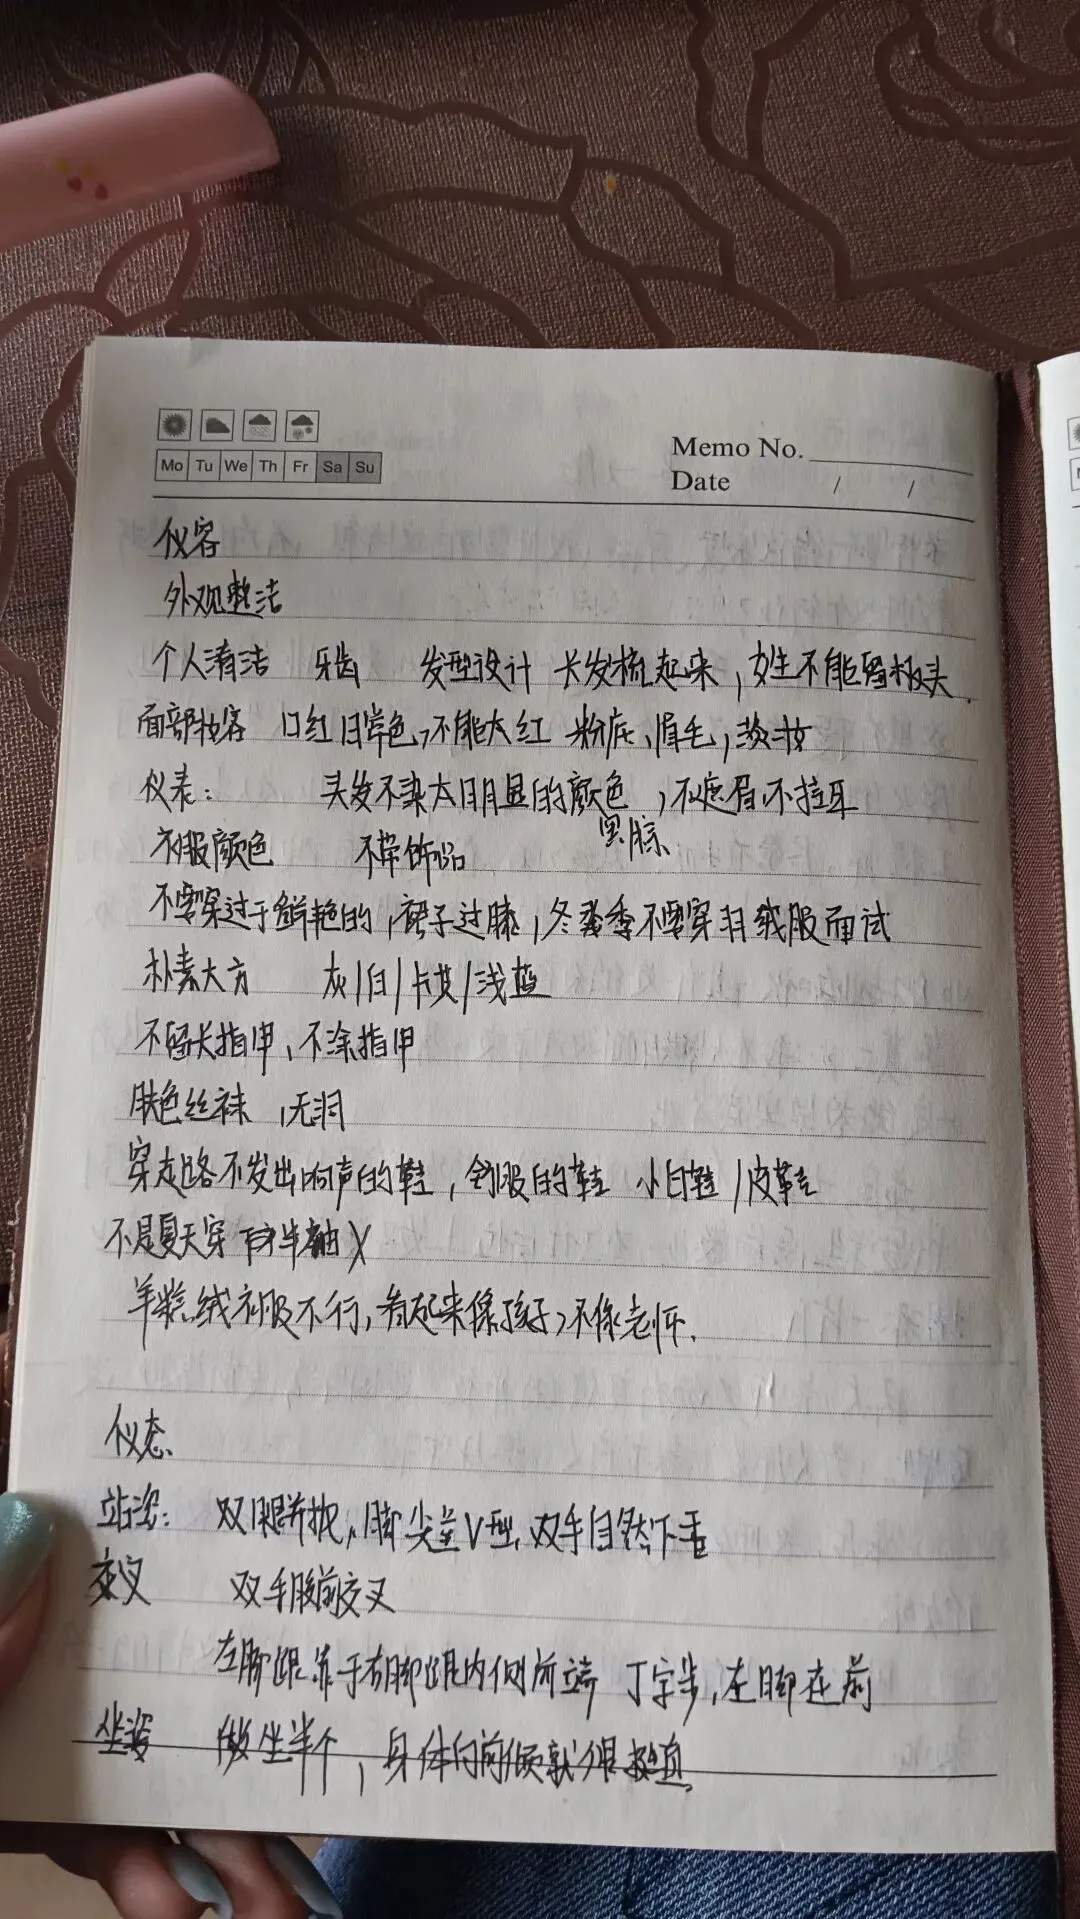 Mo Tu We Th Fr Sa Su
Memo No.
Date / /
仪容
外观整洁
个人清洁 牙齿 发型设计 长发梳起来，女生不能留板头
面部妆容 口红日常色，不能大红 粉底、眉毛，淡妆
仪表： 头发不染太明显的颜色，不遮眉，不拉耳
黑/棕
衣服颜色 不带饰品
不要穿过于鲜艳的，裙子过膝，冬季不要穿羽绒服面试
朴素大方 灰/白/卡其/浅蓝
不留长指甲、不涂指甲
肤色丝袜，无
穿走路不发出响声的鞋，舒服的鞋 小白鞋/皮鞋
不是夏天穿 半袖X
羊羔绒衣服不行，看起来像孩子，不像老师.
仪态
站姿： 双腿并拢，脚尖呈V型，双手自然下垂
交叉 双手腹前交叉
左脚跟靠于右脚跟内侧前端 丁字步，左脚在前
坐姿 做坐半个，身体向前倾就很挺直